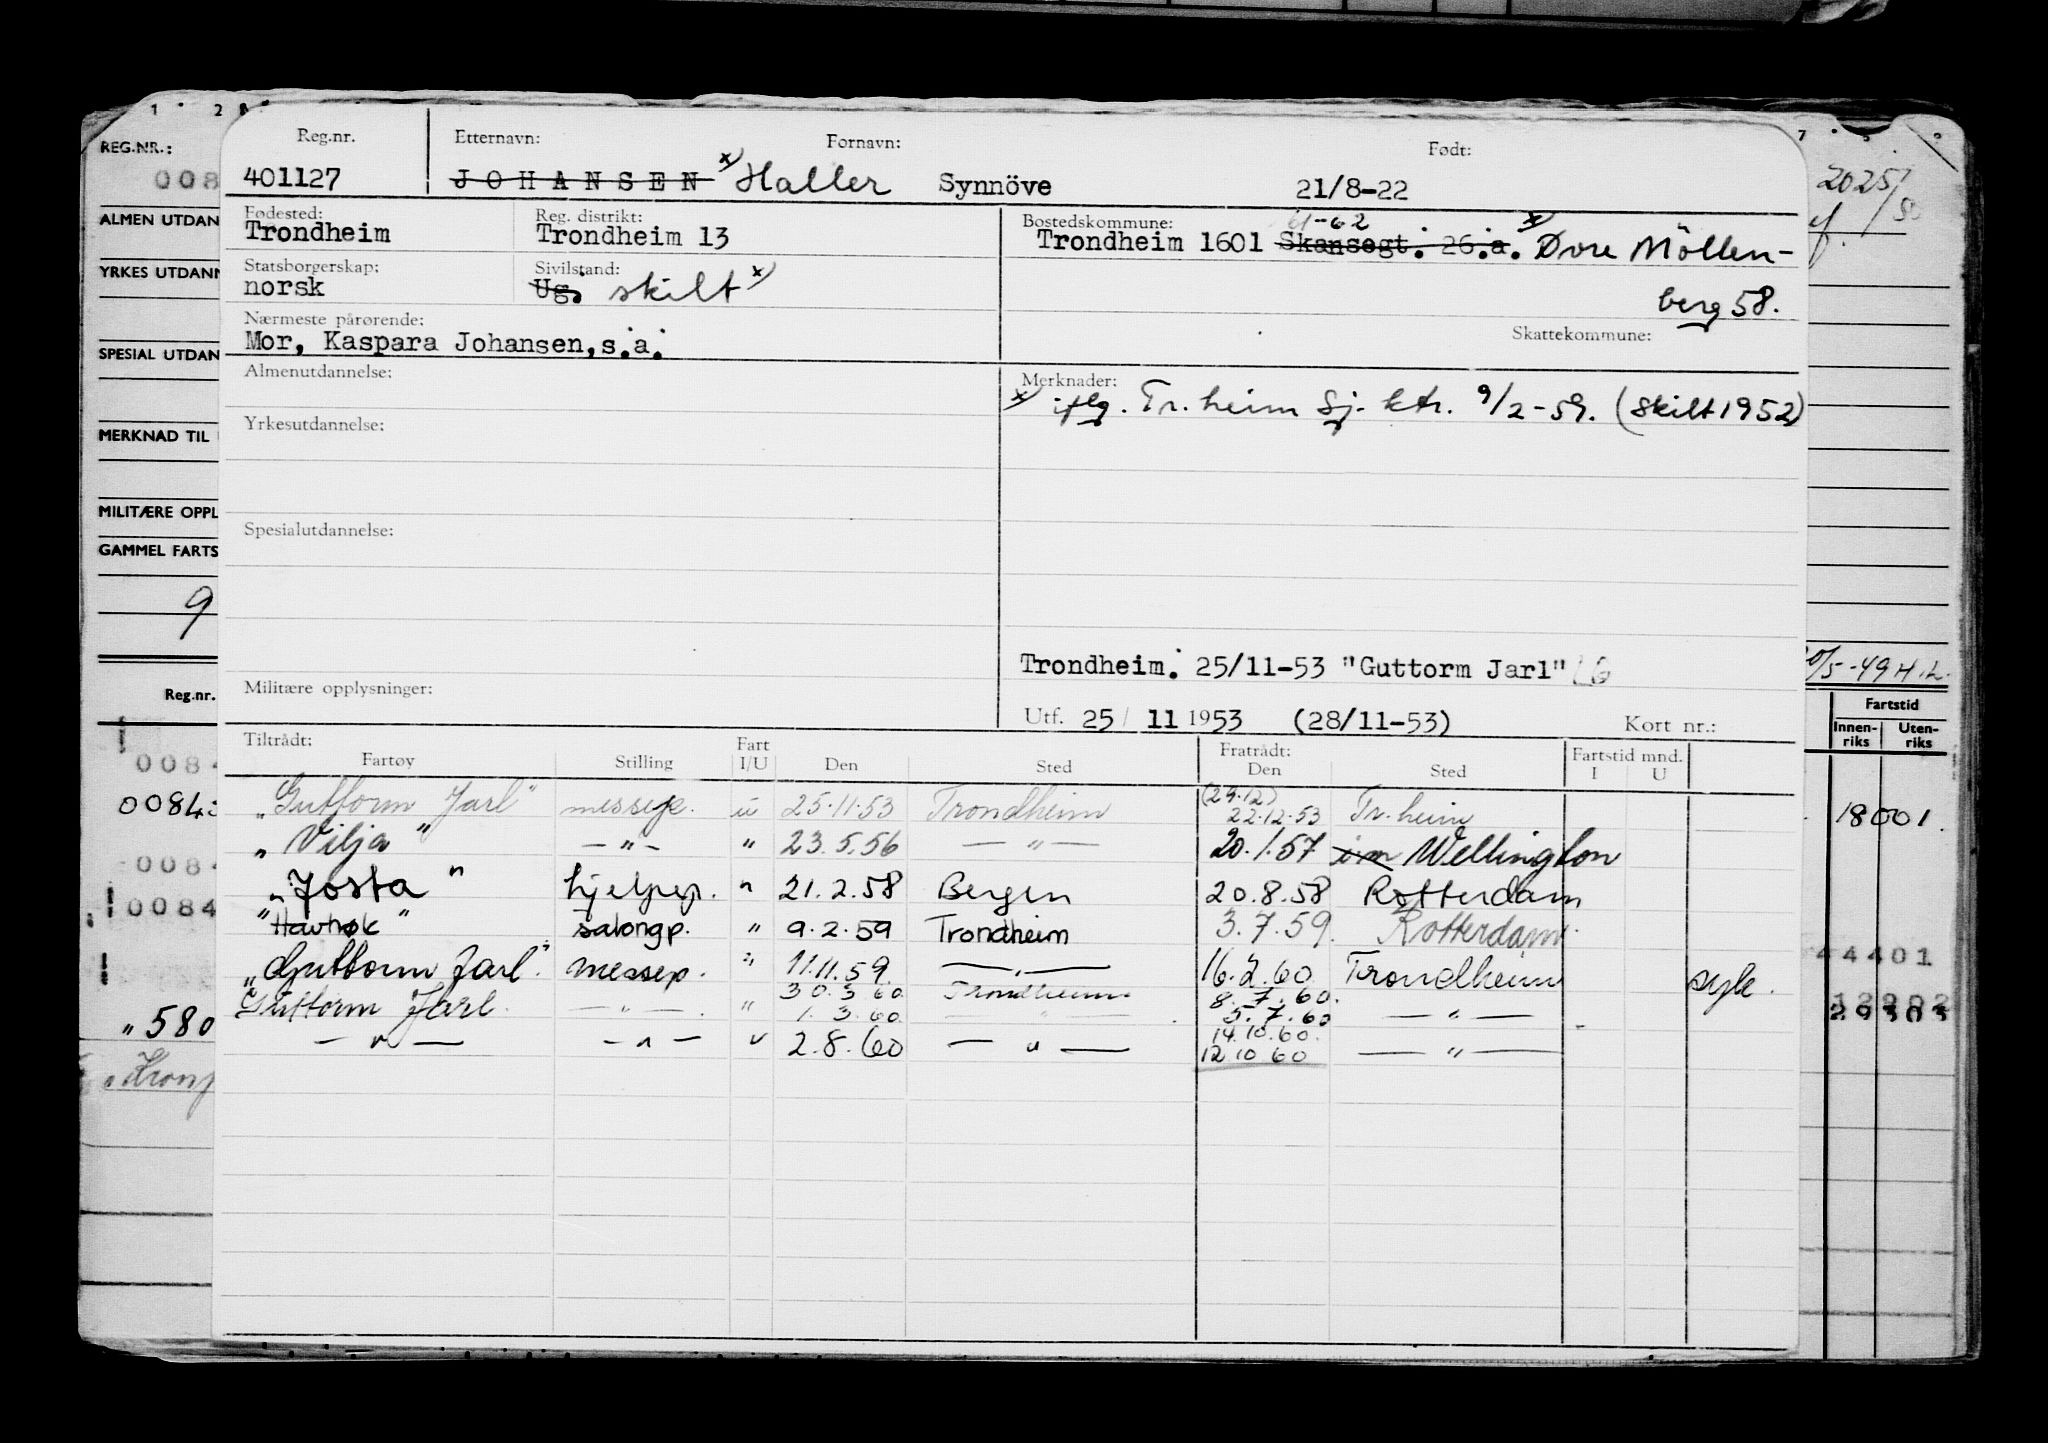 Reg.nr. Etternavn: Fornavn: Født:
401127 JOHANSEN x) Haller Synnöve 21/8-22
Fødested: Reg. distrikt: Bostedskommune: 61-62 x)
Trondheim Trondheim 13 Trondheim 1601 Skansegt. 26.a. Øvre Möllen-
Statsborgerskap: Sivilstand:
norsk Ug. skilt x) berg 58.
Nærmeste pårørende: Skattekommune:
Mor, Kaspara Johansen, s.a.
Almenutdannelse: Merknader:
x) iflg. Tr.heim Sj. ktr. 9/2-59. (skilt 1952)
Yrkesutdannelse:
Spesialutdannelse:
Trondheim. 25/11-53 "Guttorm Jarl" LG
Militære opplysninger:
Utf. 25/ 11 1953 (28/11-53) Kort nr.:
Tiltrådt: Fratrådt:
Fartøy Stilling Fart I/U Den Sted Den Sted Fartstid mnd. I U
"Guttorm Jarl" messep. u 25.11.53 Trondheim (29.12) 22.12.53 Tr.heim
"Vilja" — " — " 23.5.56 — " — 20.1.57 Wellington
"Josta" hjelpep. " 21.2.58 Bergen 20.8.58 Rotterdam
"Havhøk" salongp. " 9.2.59 Trondheim 3.7.59. Rotterdam.
"Guttorm Jarl". messep. " 11.11.59. — " — 16.2.60 Trondheim syk.
Guttorm Jarl. — " — " 30.3.60. 1.3.60. Trondheim — " — 8.7.60. 5.7.60 — " —
— " — — " — " 2.8.60 — " — 14.10.60. 12.10.60 — " —
1 2
REG.NR.:
008
ALMEN UTDAN
YRKES UTDANN
SPESIAL UTDAN
MERKNAD TIL
MILITÆRE OPPL
GAMMEL FARTS
9
Reg.nr.
0084
0084
0084
0084
"580
2025/
/5-49 H.L.
Fartstid
Innen-riks Uten-riks
18001
44401